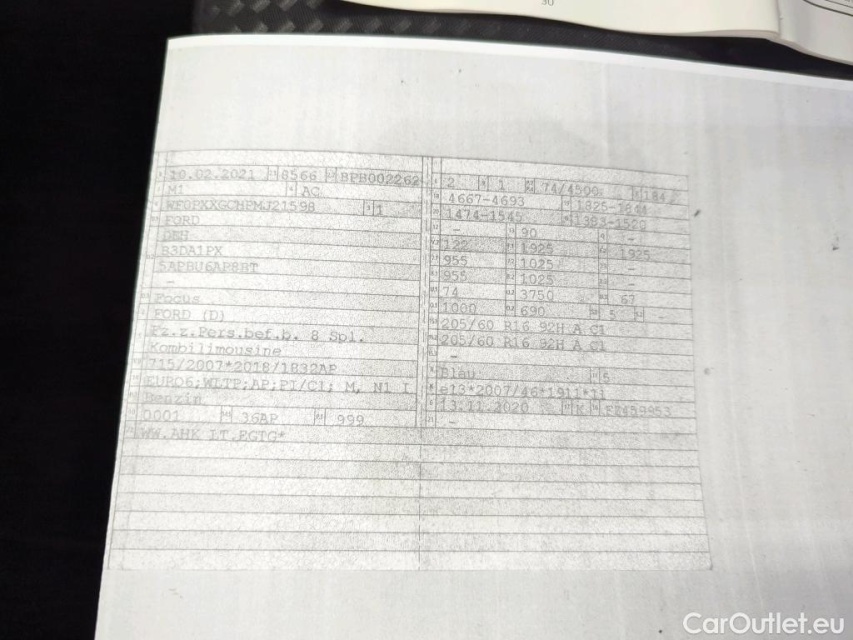 30
10.02.2021 8566 BPH002262
M1 AC
WF0PXXGCHPMJ21598 1
FORD
DEH
B3DA1PX
5APBU6APBBT
-
Focus
FORD (D)
Fz.z.Pers.bef.b. 8 Spl.
Kombilimousine
715/2007*2018/1832AP
EURO6;WLTP;AP;PI/CI; M, N1 I
Benzin
0001 36AP 999
WW.AHK LT.EGTG*
2 1 74/4500
4667-4693
1474-1545
- 90 -
122 1925 1925
955 1025 -
955 1025 -
74 3750 67
1000 690 5 -
205/60 R16 92H A C1
205/60 R16 92H A C1
-
Blau 5
e13*2007/46*1911*11
13.11.2020 K
-
CarOutlet.eu